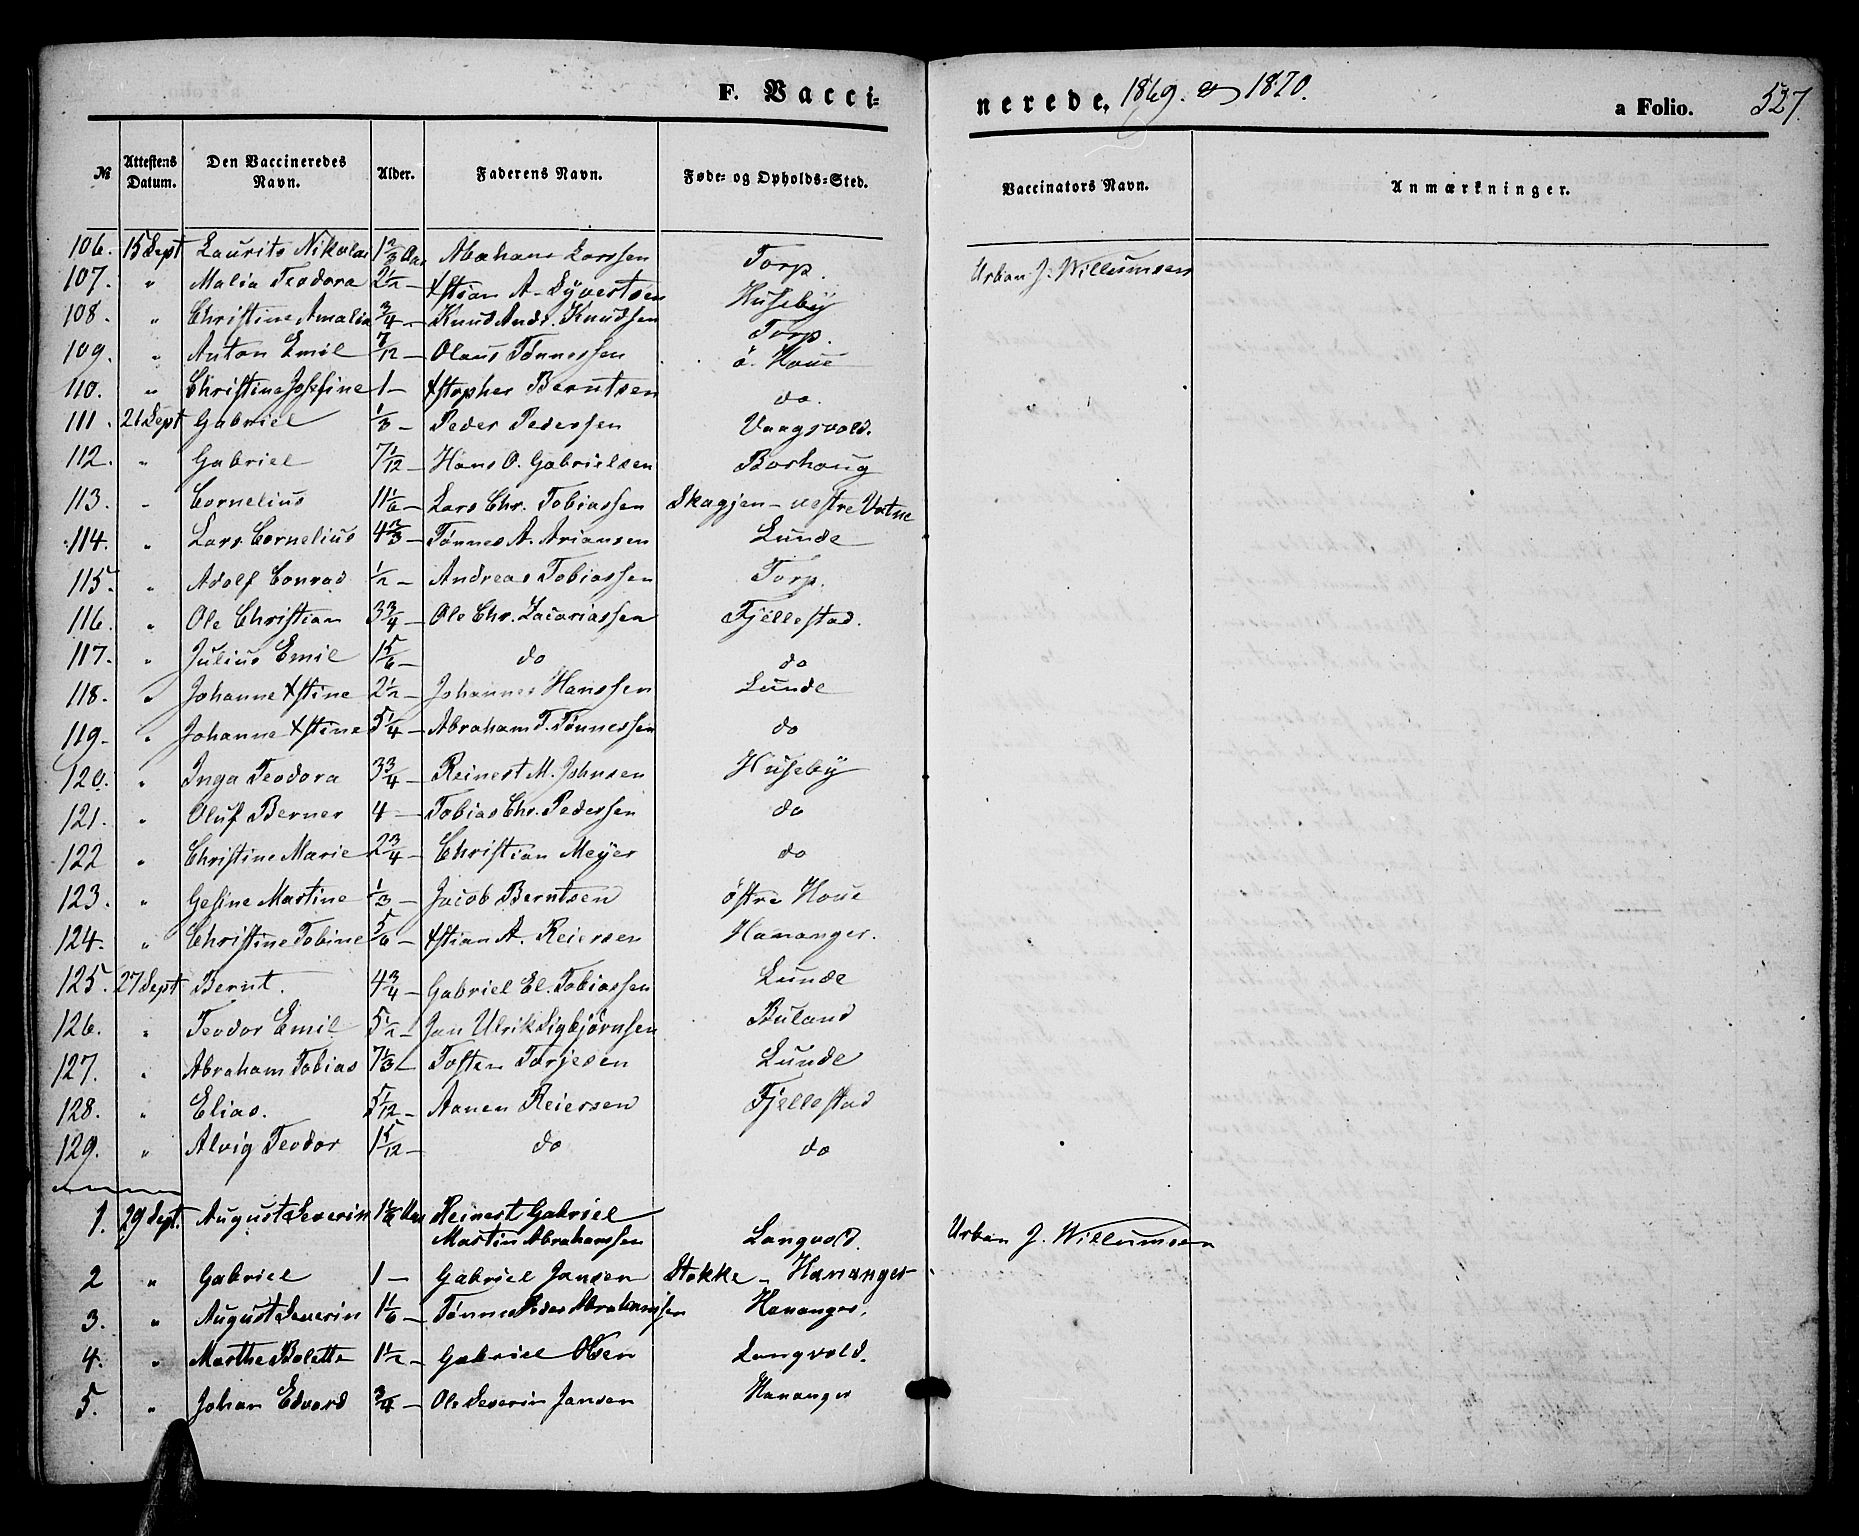 F. Vacci-
nerede. 1869. & 1870. a Folio. 527.
№ Attestens Datum. Den Vaccineredes Navn. Alder. Faderens Navn. Føde- og Opholds-Sted. Vaccinators Navn. Anmærkninger.
106. 15 Sept Laurits Nikolai 1 2/3 Aar Abrahans Larssen Torp. Urban J. Willumsen
107. " Malia Teodora 2 1/2 — Xstian A. Syvertsen Huseby
108. " Christine Amalia 3/4 — Knud Andr. Knudsen Torp.
109. " Anton Emil 7/12 — Olaus Tønnessen ö. Houe
110. " Christine Josefine 1 — Xstopher Berntsen do.
111. 21 Sept Gabriel 1/3 — Peder Pedersen Vaagsvold.
112. " Gabriel 7 1/12 — Hans O. Gabrielsen Borhaug
113. " Cornelius 11 1/6 — Lars Chr. Tobiassen Skagjen - vestre Vatne
114. " Lars Cornelius 4 2/3 — Tønnes A. Ariansen Lunde
115. " Adolf Conrad 1/2 — Andreas Tobiassen Torp.
116. " Ole Christian 3 3/4 — Ole Chr. Zacariassen Fjellestad.
117. " Julius Emil 1 5/6 — do do
118. " Johanne Xstine 2 1/2 — Johannes Hanssen Lunde
119. " Johanne Xstine 5 1/4 — Abraham T. Tønnessen do
120. " Inga Teodora 3 3/4 — Reinert M. Johnsen Huseby
121. " Oluf Berner 4 — Tobias Chr. Pedersen do
122 " Christine Marie 2 3/4 — Christian Meyer do
123. " Gesine Martine 1/3 — Jacob Berntsen östre Houe
124. " Christine Tobine 5/6 — Xstian A. Reiersen Hananger.
125. 27 Sept Bernt. 4 3/4 — Gabriel El. Tobiassen Lunde
126. " Teodor Emil 5 1/2 — Jan Ulrik Sigbjørnsen Buland
127. " Abraham Tobias 7 1/3 — Tosten Torjesen Lunde
128. " Elias. 5 1/12 — Aanen Reiersen Fjellestad
129. " Alvig Teodor 1 5/12 — do do
1. 29 Sept. August Severin 1 1/6 Aar Reinert Gabriel
Martin Abrahamsen Langvold. Urban J. Willumsen
2 " Gabriel 1 — Gabriel Jansen Stokke - Hananger
3. " August Severin 1 1/6 — Tønnes Peder Abrahamsen Hananger.
4. " Marthe Bolette 1 1/2 — Gabriel Olsen Langvold.
5. " Johan Edvard 3/4 — Ole Severin Jansen Hananger